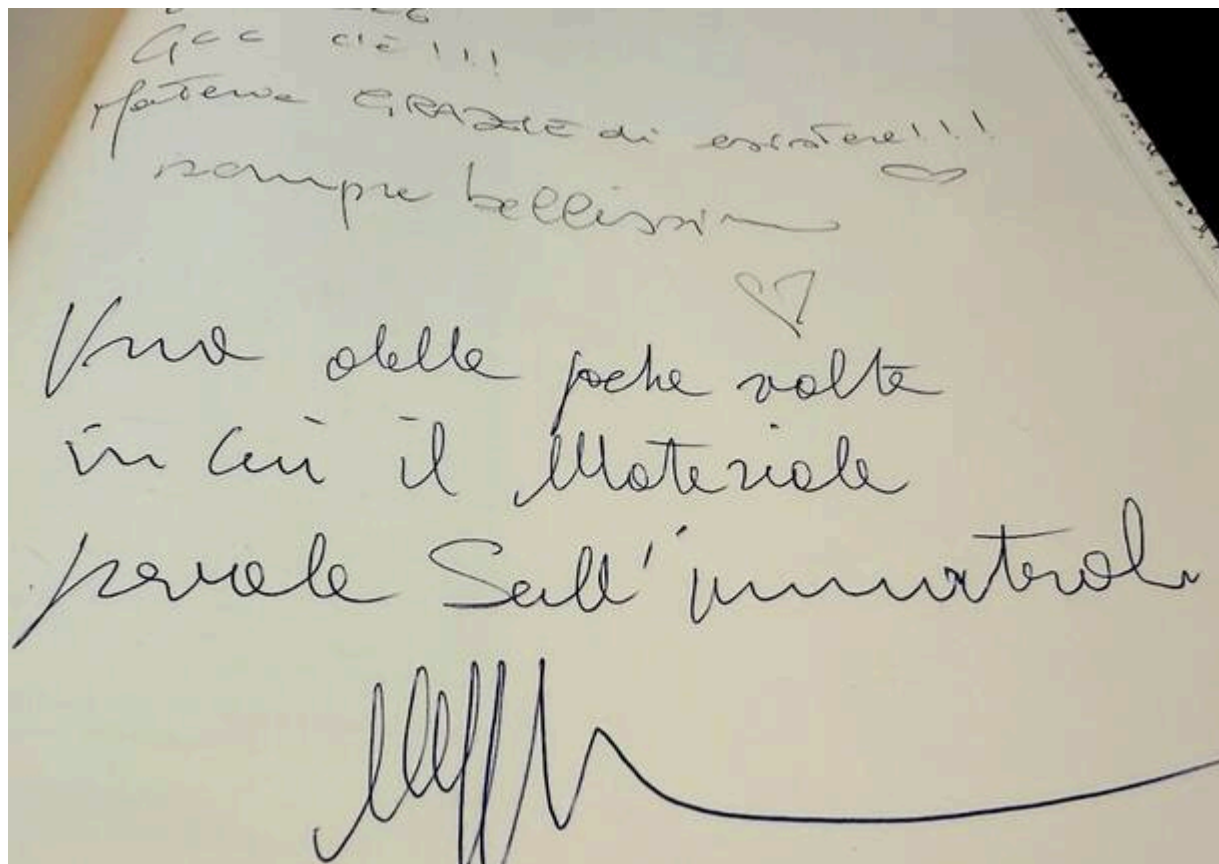 Materia GRAZIE di esistere!!!
sempre bellissim
Una delle poche volte
in cui il Materiale
prevale Sull'immateriale